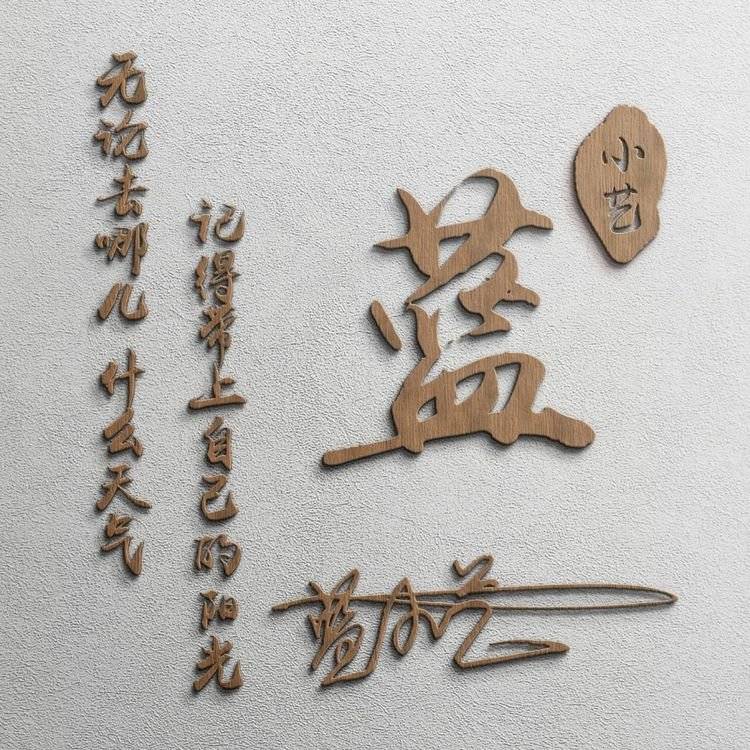 无论去哪儿 什么天气
记得带上自己的阳光
蓝
小艺
蓝小艺